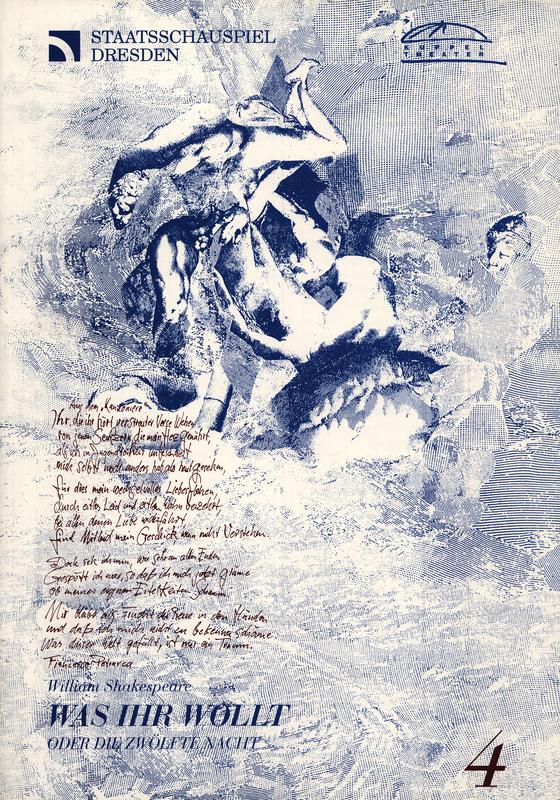 STAATSSCHAUSPIEL
DRESDEN
KUPPEL
THEATER
Aus dem "Kanzoniere"
Ihr, die ihr hört verstreuter Verse Weben
von jenen Seufzern, die mein Herz genährt,
als ich in
mich selbst noch anders hab als heut gesehen,
für dies mein wechselvolles
durch eitles Leid und eitlen Wahn
bei allen denen Liebe widerfährt
find Mitleid mein Geschick, wenn nicht Verstehen.
Doch seh ich nun, wie schon allen Enden
Gespött ich war, so daß ich mich jetzt gräme
ob meiner eignen Eitelkeiten Schaum.
Mir bleibt als Frucht die Reue in den Händen
und daß ich mich nicht zu bekennen schäme
Was dieser Welt gefällt, ist nur ein Traum.
Francesco Petrarca
William Shakespeare
WAS IHR WOLLT
ODER DIE ZWÖLFTE NACHT
4